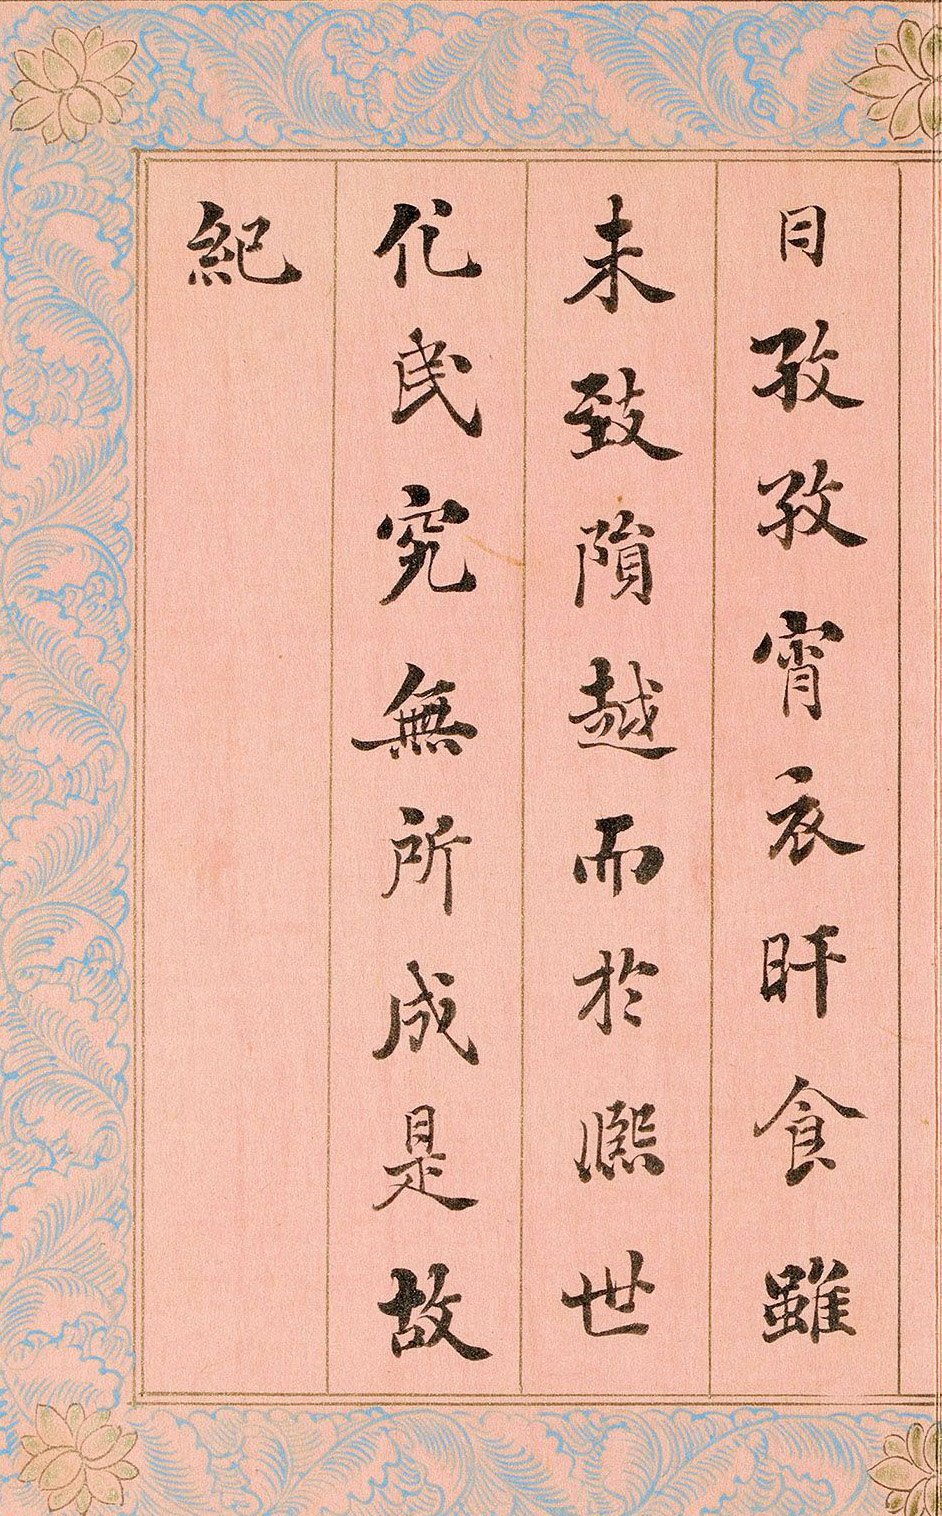 日孜孜宵衣旰食雖
未致隕越而於熈世
化民究無所成是故
紀